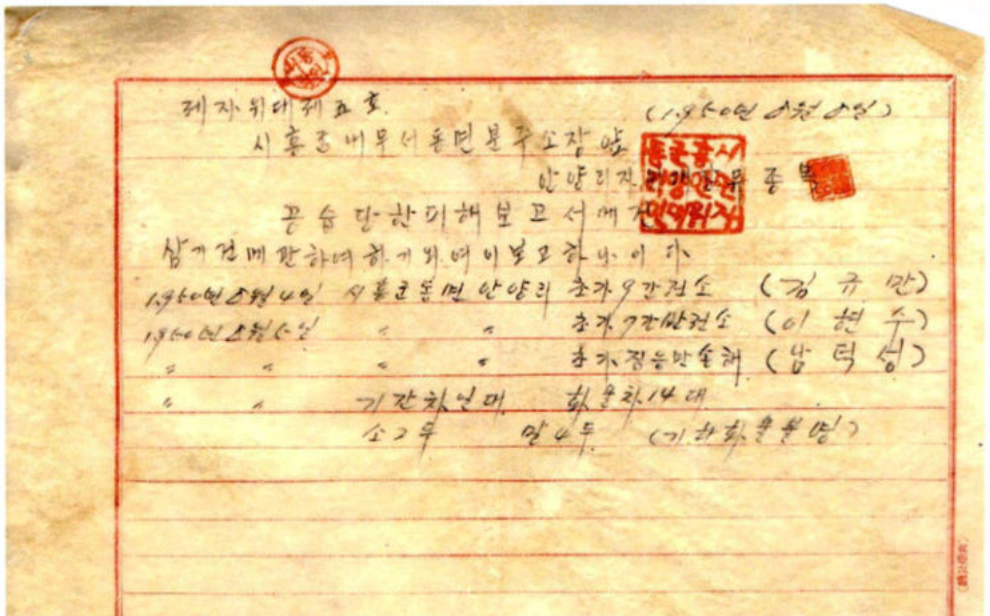 제자위대제五호 (1950년 8월 8일)
시흥군내무서동면분주소장 앞
안양리자위대장
공습단한피해보고서에건
삼기건에관하여하기와여이보고하나이다
1950년 8월 4일 시흥군동면안양리 초가9간전소 (김규만)
1950년 8월 5일 〃 〃 초가7간반전소 (이현수)
〃 〃 〃 〃 초가 손해 (남덕성)
〃 〃 기간차 대 화물차 14대
소2두 말4두 (기타화물불명)